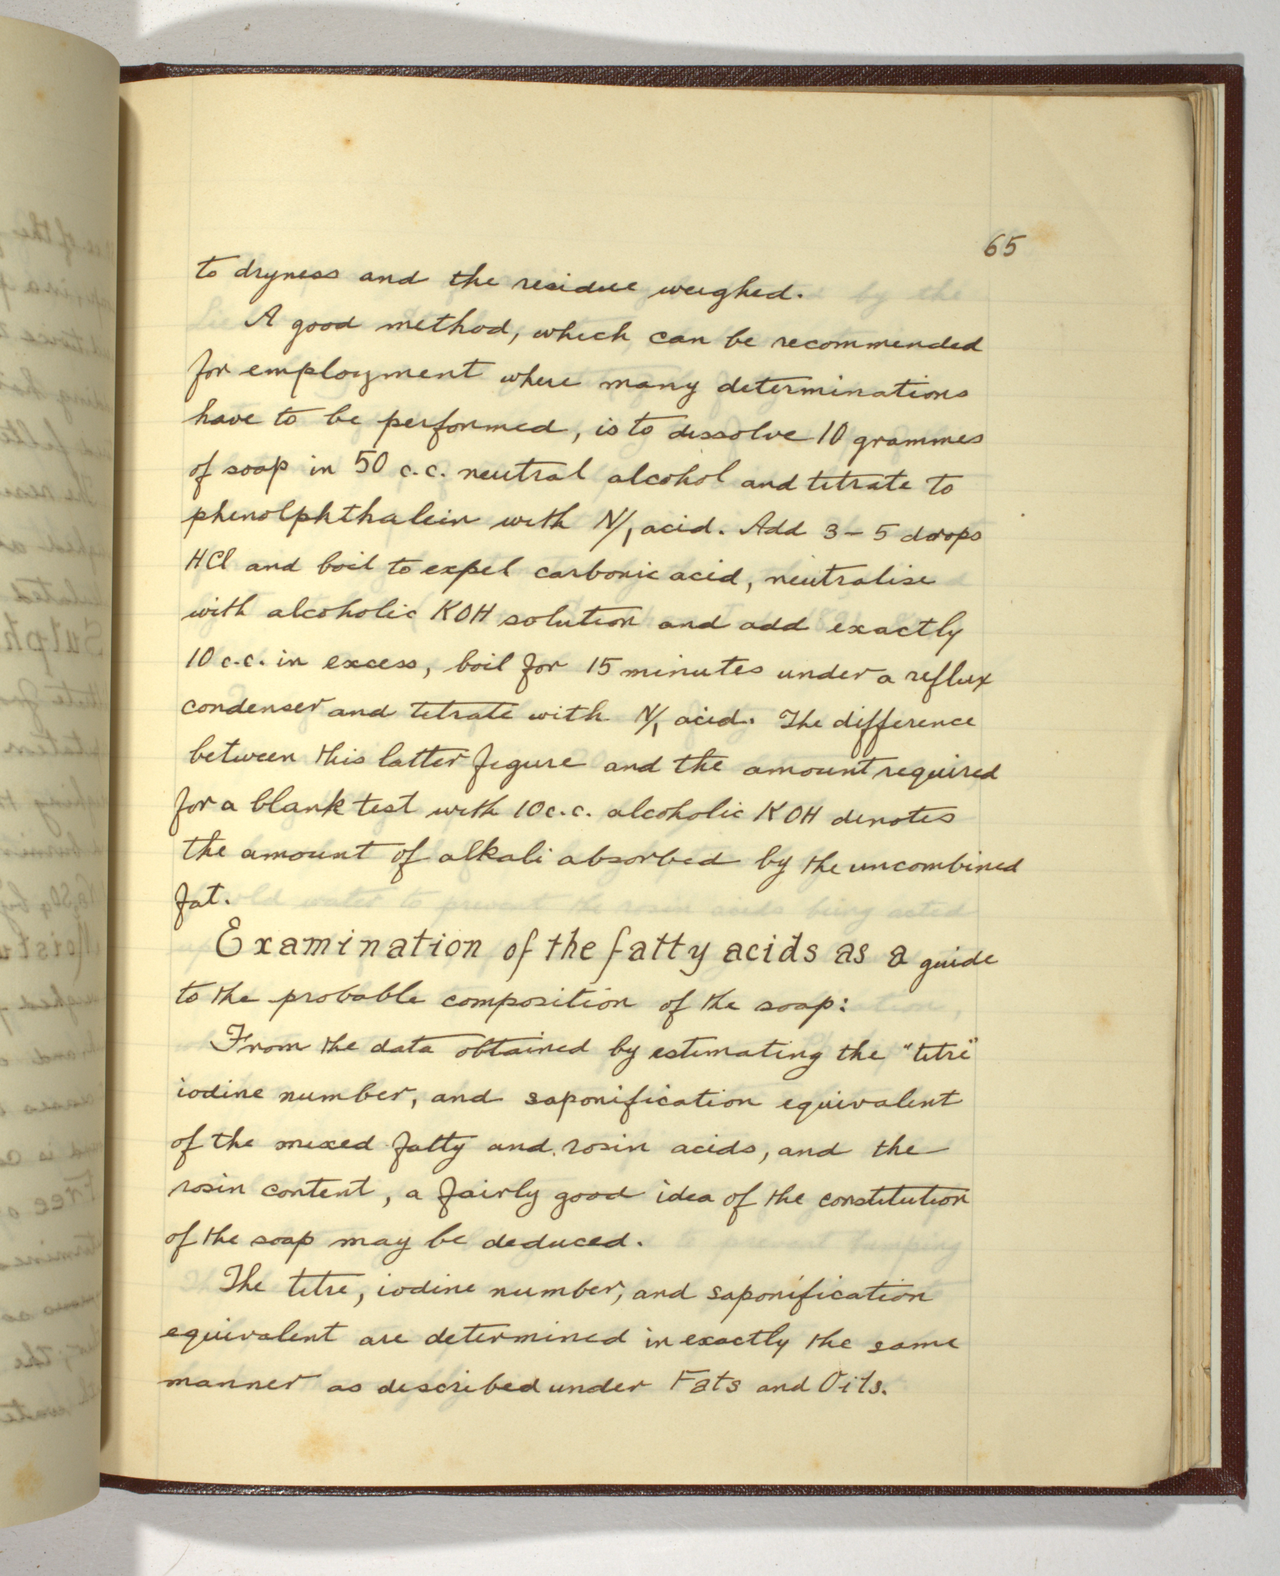 65
to dryness and the residue weighed.
A good method, which can be recommended
for employment where many determinations
have to be performed, is to dissolve 10 grammes
of soap in 50 c.c. neutral alcohol and titrate to
phenolphthalein with N/1 acid. Add 3-5 drops
HCl and boil to expel carbonic acid, neutralise
with alcoholic KOH solution and add exactly
10 c.c. in excess, boil for 15 minutes under a reflux
condenser and titrate with N/1 acid. The difference
between this latter figure and the amount required
for a blank test with 10 c.c. alcoholic KOH denotes
the amount of alkali absorbed by the uncombined
fat.
Examination of the fatty acids as a guide
to the probable composition of the soap:
From the data obtained by estimating the "titre"
iodine number, and saponification equivalent
of the mixed fatty and rosin acids, and the
rosin content, a fairly good idea of the constitution
of the soap may be deduced.
The titre, iodine number, and saponification
equivalent are determined in exactly the same
manner as described under Fats and Oils.